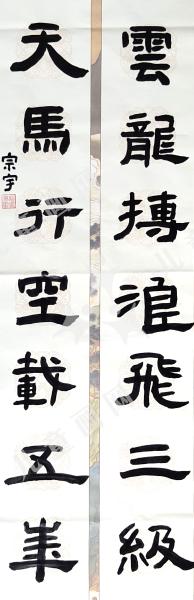 雲龍搏浪飛三級
天馬行空載五年
宗宇